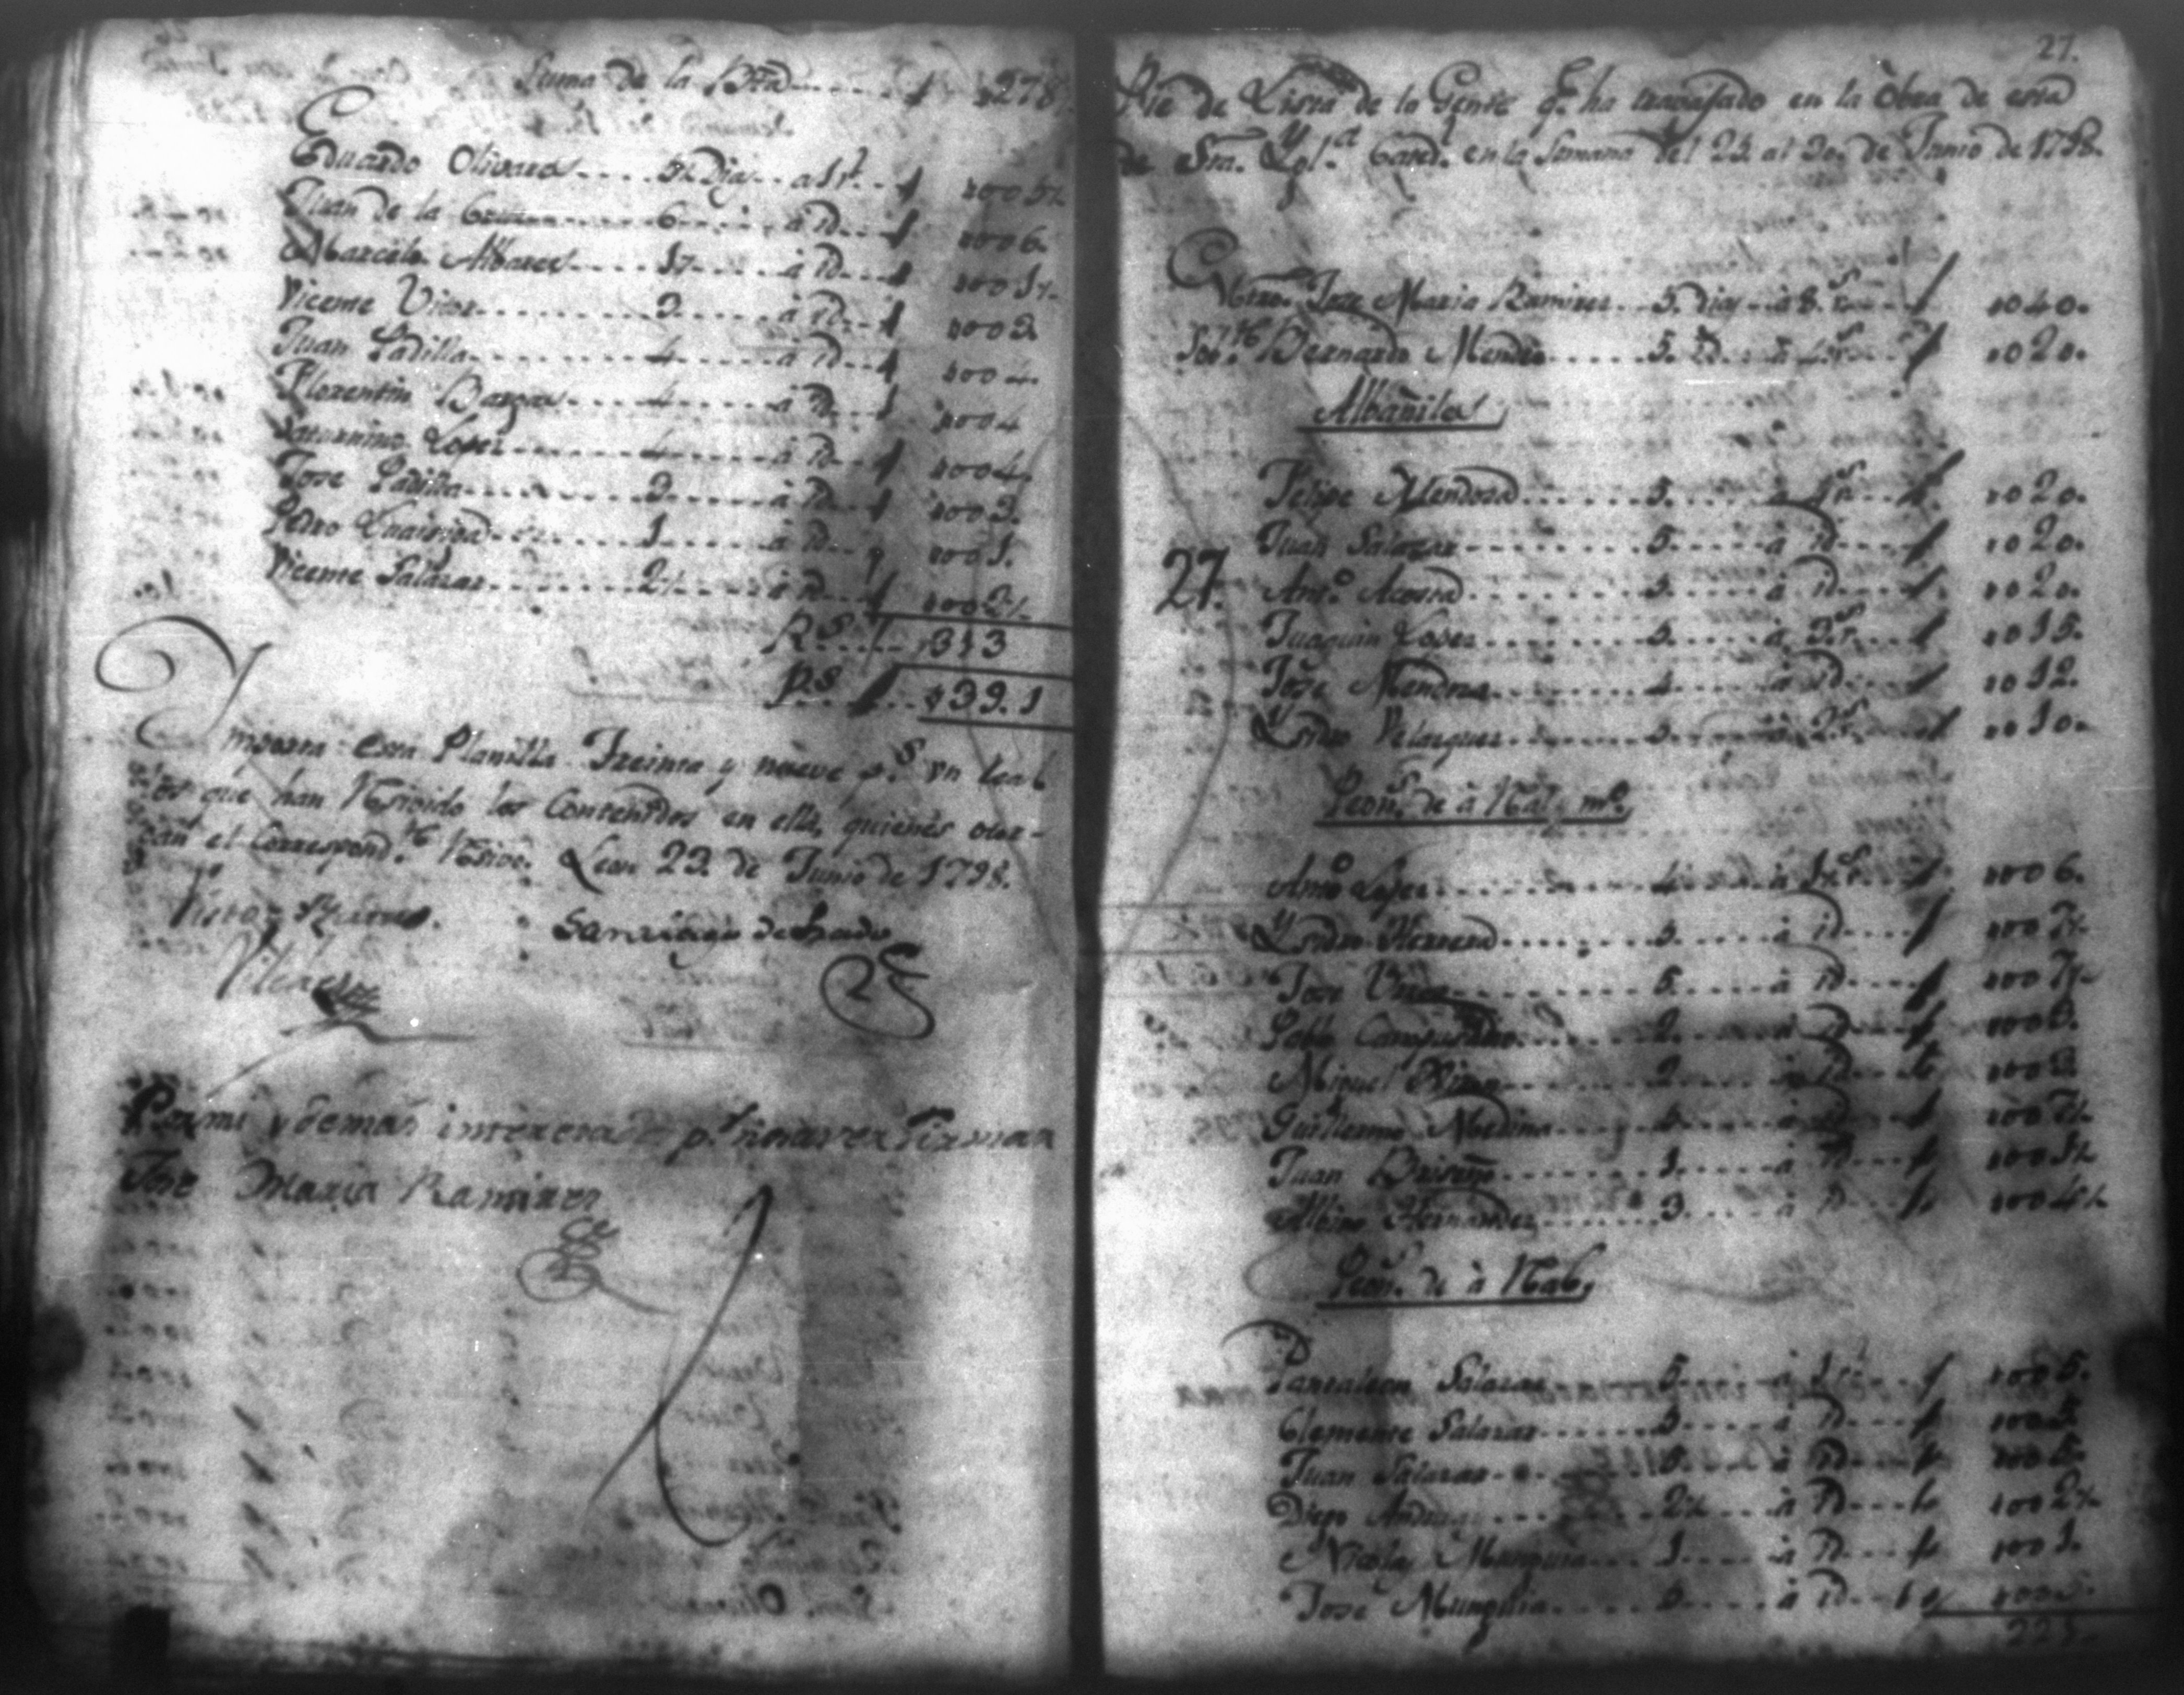 Suma de la Bta. . . . 278
Eduardo Olivares . . . 5½ Dias . . a 1 r.l . . . 005½
Juan de la Cruz . . . 6 . . . à id. . . 006.
Marcelo Albares . . . 1½ . . . à id. . . 001½
Vicente . . . 3 . . . à id. . . 003.
Juan Padilla . . . 4 . . . à id. . . 004.
Florentin Bargas . . . 4 . . . à id. . . 004
Saturnino Lopez . . . 4 . . . à id. . . 004.
Jose Padilla . . . 3 . . . à id. . . 003.
Pedro . . . 1 . . . à id. . . 001.
Vicente Salazar . . . 2½ . . . à id. . . 002½
R.s . . . 313
P.s . . . 39. 1
Ymporta esta Planilla Treinta y nueve p.s un real
los que han Resivido los Contenidos en ella, quienes otor-
gan el Correspond.te Resivo. Leon 23. de Junio de 1798.
Santiago de
Por mi y demas interezados p.r no saver firmar
Jose Maria Ramirez
27.
Pie de Lista de la Gente q.e ha travajado en la Obra de esta
de Sra. Ygl.a en la Semana del 25. al 30. de Junio de 1798.
Mtro. Jose Maria Ramirez . . 5. dias . . à 8. r.s . . 040.
Sob.te Bernardo Mendes . . . 5. id. . . à 4 r.s . . 020.
Albañiles
Felipe Mendosa . . . 5. . . . à 4 r.s . . 020.
Juan Salazar . . . 5. . . . à id. . . 020.
27. Ant.o Acosta . . . 5. . . . à id. . . 020.
Juaquin Lopez . . . 5. . . . à 3. r.s . . 015.
Jose Mendosa . . . 4. . . . à id. . . 012.
Ysidro Velasquez . . . 5. . . . à 2. r.s . . 010.
Peon.s de à Rál y m.o
Ant.o Lopez . . . 4. . . . à 1½ r.s . . 006.
Ysidro Herrera . . . 5. . . . à id. . . 007½
Jose . . . 5. . . . à id. . . 007½
Pablo . . . 2. . . . à id. . . 003.
Miguel . . . 2. . . . à id. . . 003
Guillermo Medina . . . 5. . . . à id. . . 007½
Juan Briseño . . . 1. . . . à id. . . 001½
Albino Hernandez . . . 3. . . . à id. . . 004½
Peon.s de à Rál
Pantaleon Salazar . . . 5. . . . à 1 r.l . . 005.
Clemente Salazar . . . 5. . . . à id. . . 005.
Juan Salazar . . . 5. . . . à id. . . 005.
Diego . . . 2½ . . . à id. . . 002½
Nicolas Munguia . . . 1. . . . à id. . . 001.
Jose Munguia . . . à id.